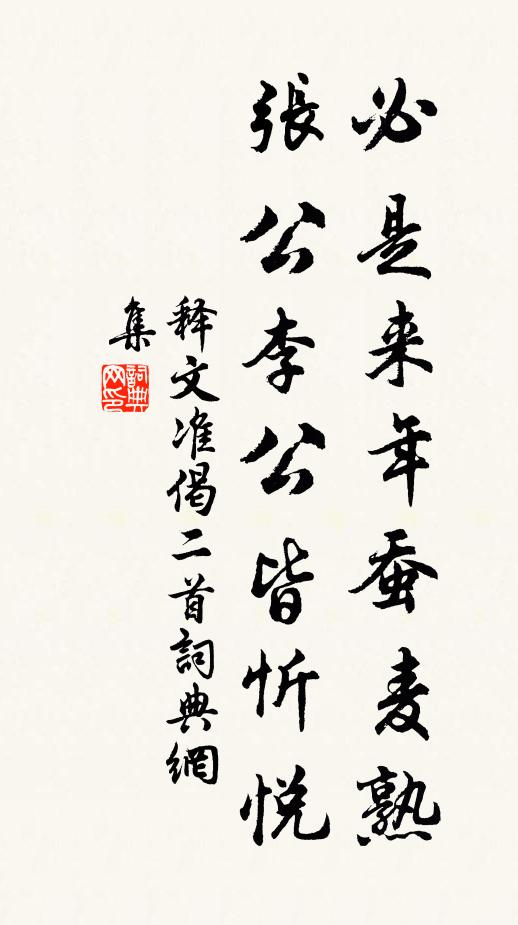 必是来年蚕麦熟
張公李公皆忻悅
释文准偈二首詞典網
集
詞典网印